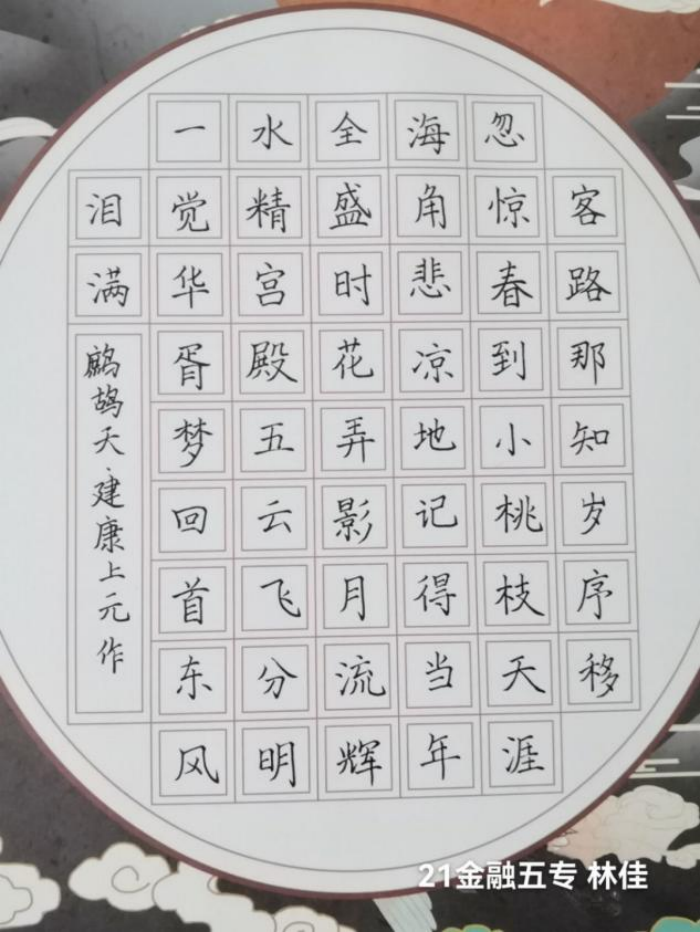 客路那知岁序移
忽惊春到小桃枝天涯
海角悲凉地记得当年
全盛时花弄影月流辉
水精宫殿五云飞分明
一觉华胥梦回首东风
泪满
鹧鸪天建康上元作
21金融五专 林佳